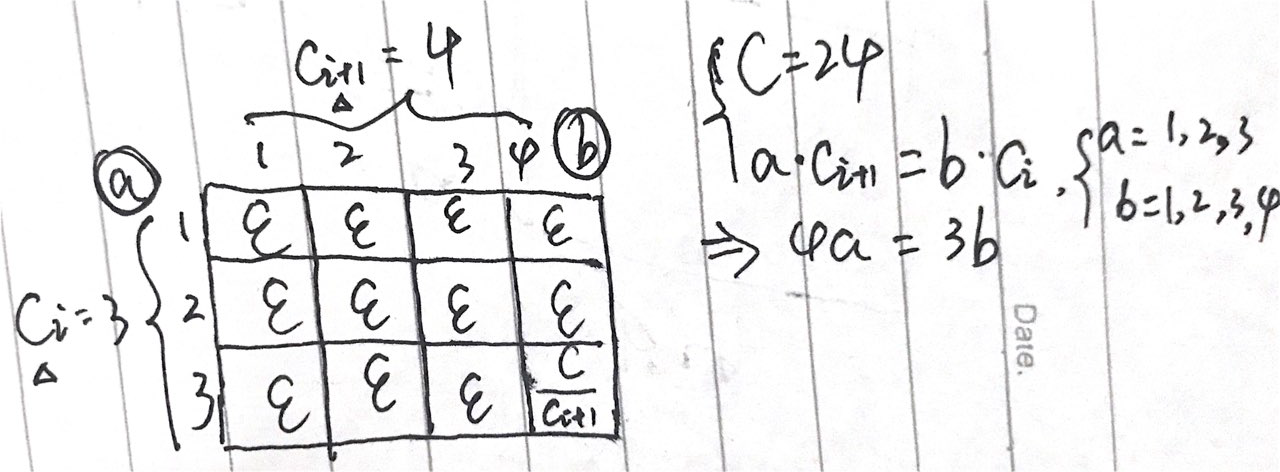 C_{i+1} = 4
△
1 2 3 4 ⓑ
ⓐ
1 ε ε ε ε
C_i = 3 2 ε ε ε ε
△
3 ε ε ε C/C_{i+1}
{ C = 24
a · C_{i+1} = b · C_i , { a = 1, 2, 3
b = 1, 2, 3, 4
⇒ 4a = 3b
Date.